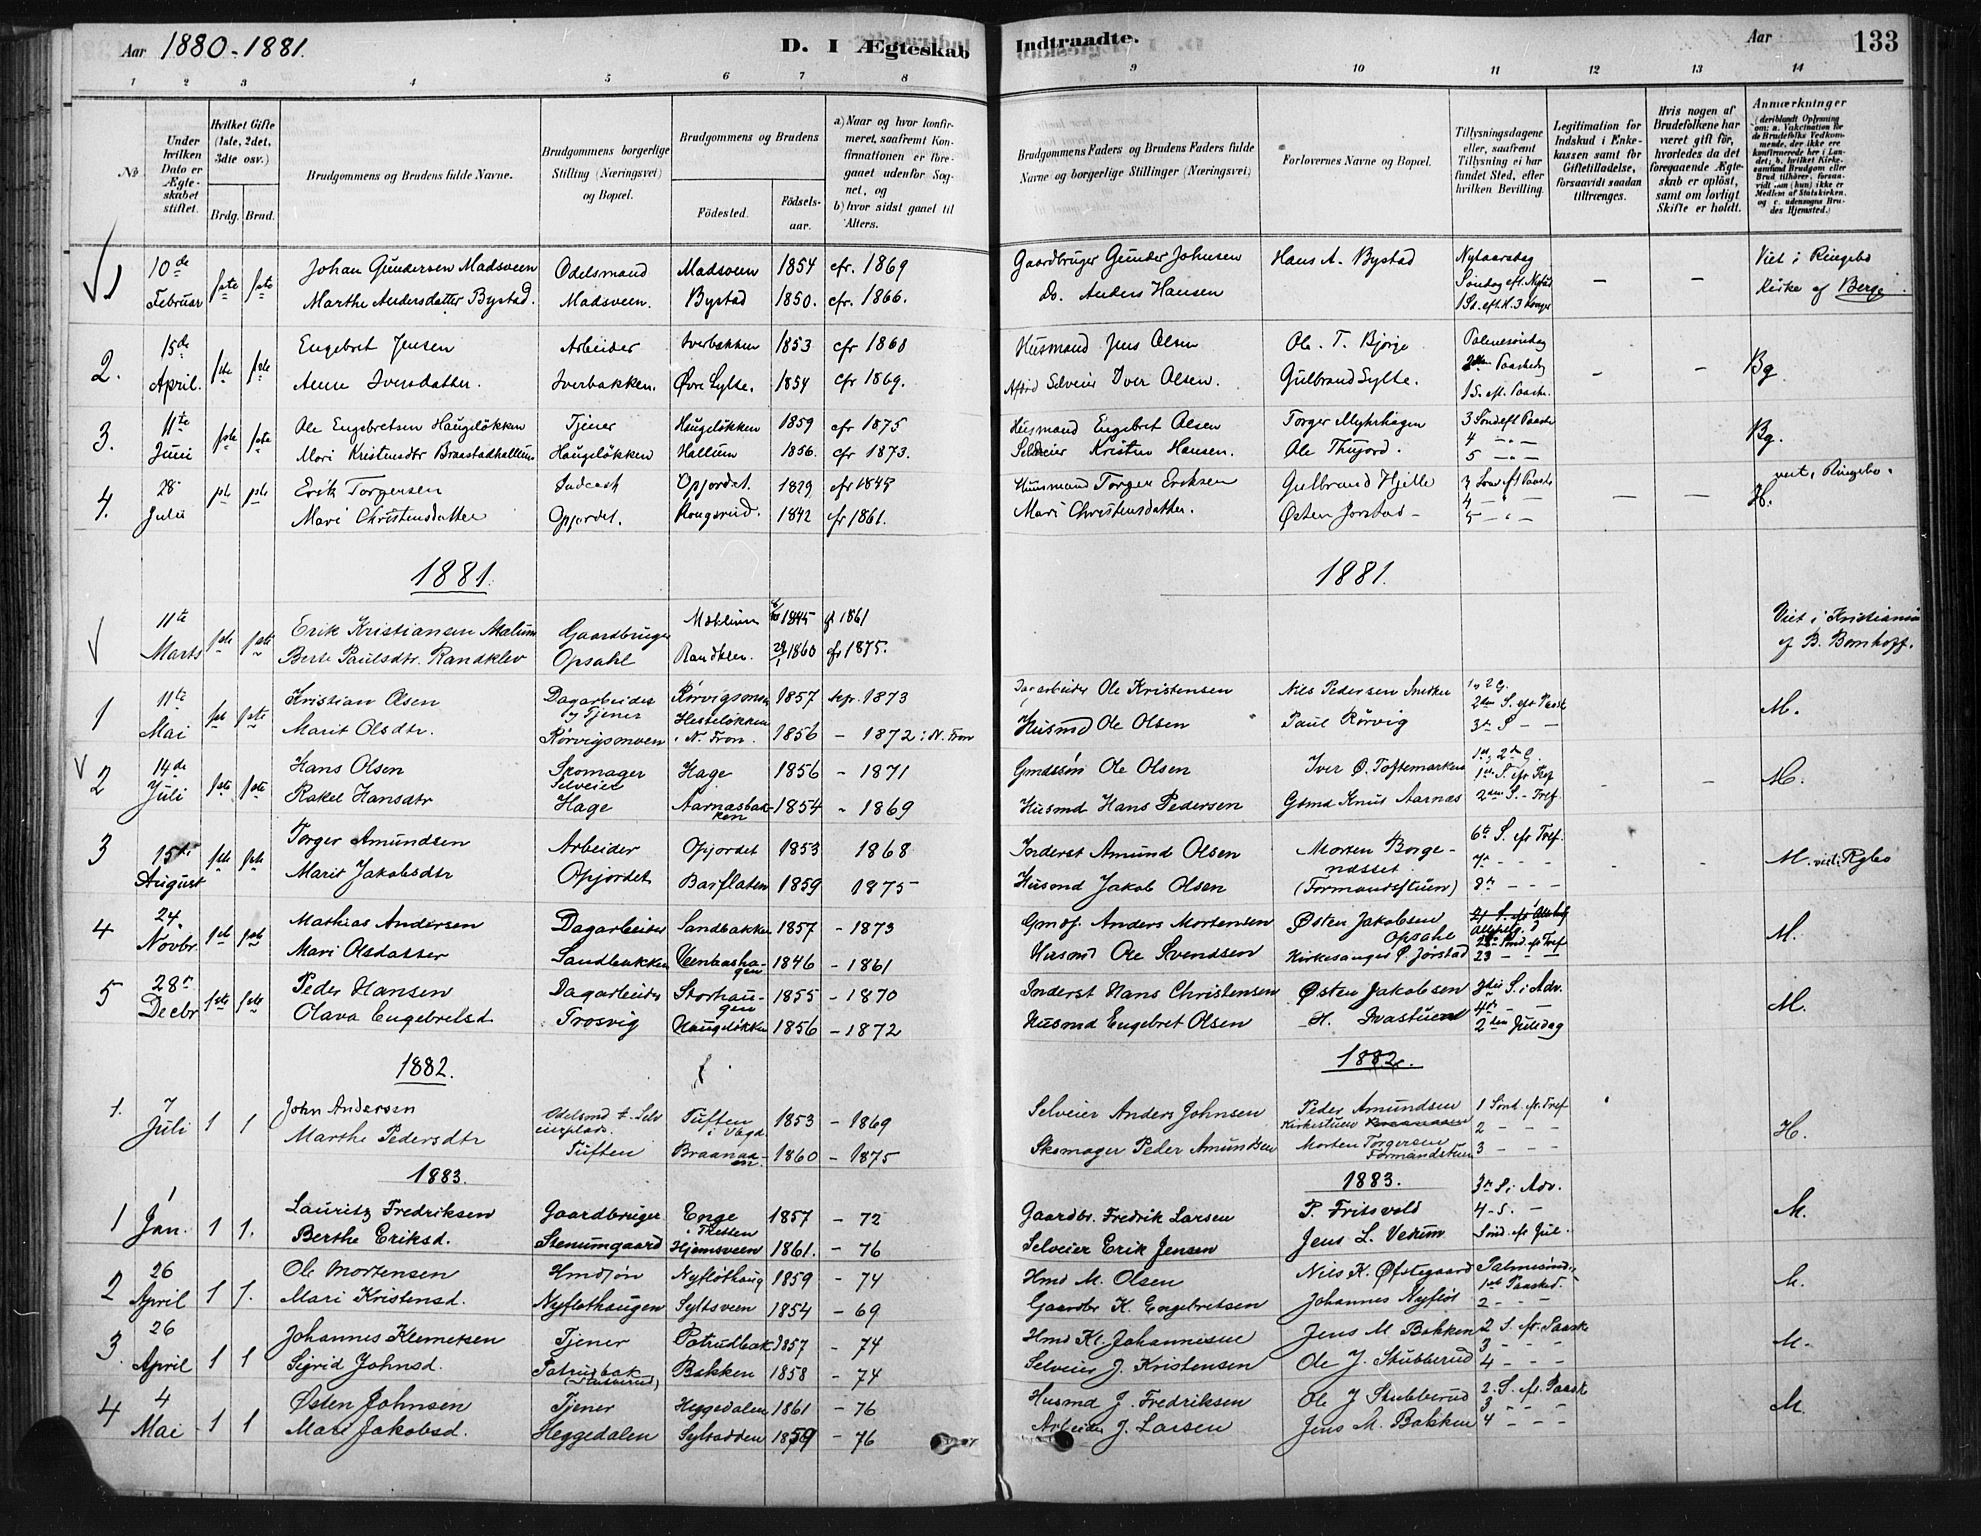 Aar 1880-1881. D. I Ægteskab Indtraadte. Aar 133
1 2 3 4 5 6 7 8 9 10 11 12 13 14
No
Under hvilken Dato er Ægteskabet stiftet.
Hvilket Gifte (1ste, 2det, 3die osv.)
Brdg. Brud.
Brudgommens og Brudens fulde Navne.
Brudgommens borgerlige Stilling (Næringsvei) og Bopæl.
Brudgommens og Brudens
Fødested. Fødsels-aar.
a) Naar og hvor konfirmeret, saafremt Konfirmationen er foregaaet udenfor Sognet, og
b) hvor sidst gaaet til Alters.
Brudgommens Faders og Brudens Faders fulde Navne og borgerlige Stillinger (Næringsvei)
Forlovernes Navne og Bopæl.
Tillysningsdagene eller, saafremt Tillysning ei har fundet Sted, efter hvilken Bevilling.
Legitimation for Indskud i Enkekassen samt for Giftetilladelse, forsaavidt saadan tiltrænges.
Hvis nogen af Brudefolkene har været gift før, hvorledes da det foregaaende Ægteskab er opløst, samt om lovligt Skifte er holdt.
Anmærkninger (deriblandt Oplysning om: a. Vakcination for de Brudefolks Vedkommende, der ikke ere konfirmerede her i Landet; b. hvilket Kirkesamfund Brudgom eller Brud tilhører, forsaavidt han (hun) ikke er Medlem af Statskirken, og c. udensogns Brudes Hjemsted.)
1 10de Februar 1ste 1ste Johan Gundersen Madsveen Odelsmand Madsveen 1854 cfr. 1869 Gaardbruger Gunder Johnsen Hans A. Bystad Nytaarsdag Viet i Ringebo
Marthe Andersdatter Bystad. Madsveen. Bystad 1850. cfr. 1866. Do. Anders Hansen Søndag eft. Nytaar Kirke af Berge.
2. 15de April. 1ste 1ste Engebret Jensen Arbeider Iverbakken 1853 cfr 1868 Husmand Jens Olsen Ole T. Bjørge Palmesøndag Bg
Anne Iversdatter. Iverbakken. Øvre Sylte. 1854 cfr 1869. Selveier Iver Olsen. Gulbrand Sylte. 2den Paaskedag
3. 11te Juni 1ste 1ste Ole Engebretsen Haugeløkken Tjener Haugeløkken 1859 cfr 1875 Husmand Engebret Olsen Torger Myhrhagen 3 Sønd eft Paaske Bg.
Mari Kristensdtr Braastadhallum Haugeløkken Hallum 1856. cfr 1873. Selveier Kristen Hansen. Ole Thujord. 4 5
4. 28 Juli 1ste 1ste Erik Torgersen Inderst Opjordet. 1829 cfr 1845 Huusmand Torger Eriksen Gulbrand Hjelle 3 Søn eft Paaske viet i Ringebo.
Mari Christensdatter Opjordet. Kongsrud. 1842 cfr 1861. Mari Christensdatter. Østen Jorstad 4 5 H.
1881. 1881.
11te Marts 1ste 1ste Erik Kristiansen Mælum Gaardbruger Mæhlum 1845 cf 1861 Viet i Kristiania
Berte Paulsdtr. Randklev Opsahl Randklev 29/1 1860 cfr 1875. af B. Bernhoft.
1 11te Mai 1ste 1ste Kristian Olsen Dagarbeider og Tjener Rørvigsmoen 1857 sep. 1873 Dagarbeider Ole Kristensen Nils Pedersen Smiker 2den S. eft Paaske M.
Marit Olsdtr. Rørvigsmoen Hesteløkken i N. Fron 1856 - 1872 i N. Fron Husmd Ole Olsen Paul Rørvig 3die S
2 14de Juli 1ste 1ste Hans Olsen Skomager Selveier Hage 1856 - 1871 Gmdssøn Ole Olsen Iver Ø. Toftemarken 1ste S. eft Tref M.
Rakel Hansdtr Hage Aarnæsbakken 1854 - 1869 Husmd Hans Pedersen Gdmd Knut Aarnæs 2den S. - Tref.
3 15de August 1ste 1ste Torger Amundsen Arbeider Opjordet 1853 1868 Inderst Amund Olsen Morten Borgenæsset 6te S. eft Tref. M. viet i Rgbo
Marit Jakobsdtr Opjordet Barflaten 1859 1875 Husmd Jakob Olsen (Formandsstuen) 7de 8de
4 24 Novbr. 1ste 1ste Mathias Andersen Dagarbeider Sandbakken 1857 - 1873 Gmdf. Anders Mortensen Østen Jakobsen Opsahl M.
Mari Olsdatter Sandbakken 1846 - 1861 Husmd Ole Svendsen Kirkesanger Ø. Jørstad 23
5 28de Decbr 1ste 1ste Peder Hansen Dagarbeider Storhaugen 1855 - 1870 Inderst Hans Christensen Østen Jakobsen 3die S. i Adv. M.
Olava Engebretsd Trosvig Haugeløkken 1856 - 1872 Husmd Engebret Olsen 4de 2den Juledag
1882. 1882.
1. 7 Juli 1 1 John Andersen Tuften i Vaagaa 1853 - 1869 Selveier Anders Johnsen Peder Amundsen Kirkestuen 1 Sønd. eft. Tref H.
Marthe Pedersdtr Tuften Braanaaen 1860 - 1875 Skomager Peder Amundsen Morten Torgersen Formandstuen 2 3
1883. 1883.
1 1 Jan. 1 1. Lauritz Fredriksen Gaardbruger Enge 1857 - 72 Gaardbr. Fredrik Larsen P. Fritsvold 3die S i Adv. M.
Berthe Eriksd. Stenumgaard Hjemsveen 1861. - 76 Selveier Erik Jensen Jens L. Vedum 4 - S. - Sønd. eft Jul.
2 26 April 1 1. Ole Mortensen Hmdsøn Nyfløthaug 1859 - 74 Hmd M. Olsen Nils K. Øfstegaard Palmesønd. M.
Mari Kristensd. Nyfløthaugen Syltsveen 1854 - 69 Gaardbr K. Engebretsen Johannes Nyfløt 1ste Paasked. 2 - - -
3. 26 April 1 1 Johannes Klemetsen Tjener Patrudbak 1857 - 74 Hmd Kl. Johannesen Jens M Bakken 2 S. eft. Paaske M.
Sigrid Johnsd. Patrudbak Bakken 1858 - 74 Selveier J. Kristensen Ole J. Stubberud 3 4 - - -
4 4 Mai 1 1 Østen Johnsen Tjener Heggedalen 1861 - 76 Husmd J. Fredriksen Ole J Stubberud 2. S. eft. Paaske M.
Mari Jakobsd. Heggedalen Syltodden 1859 - 76 Arbeider J. Larsen Jens M. Bakken 3 4 - - -